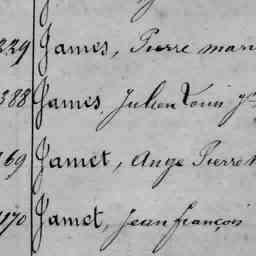 229 James, Pierre mari
388 James Julien Louis
169 Jamet, Ange Pierre
1170 Jamet, Jean françois